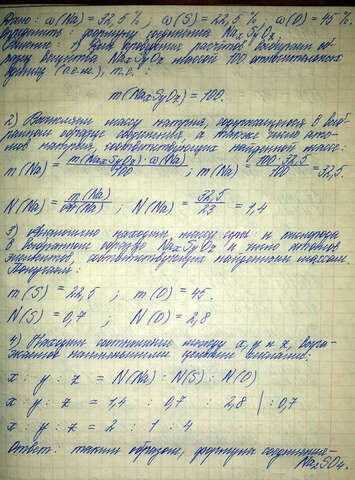 Дано: ω(Na) = 32,5 %, ω(S) = 22,5 %, ω(O) = 45 %.
формулу соединения NaxSyOz
Решение: 1) Для проведения расчётов выберем об-
разец вещества NaxSyOz массой 100 относительных
единиц (о.е.м.), т.е.:
m(NaxSyOz) = 100.
2) Вычислим массу натрия, содержащуюся в выб-
ранном образце соединения, а также число ато-
мов натрия, соответствующих найденной массе:
m(Na) = m(NaxSyOz) · ω(Na) / 100 ; m(Na) = 100 · 32,5 / 100 = 32,5.
N(Na) = m(Na) / Ar(Na) ; N(Na) = 32,5 / 23 = 1,4
3) Аналогично находим массу серы и кислорода
в выбранном образце NaxSyOz и число атомов
элементов, соответствующих найденным массам.
Получаем:
m(S) = 22,5 ; m(O) = 45.
N(S) = 0,7 ; N(O) = 2,8
4) Находим соотношение между x, y и z, выра-
жаемое наименьшими целыми числами:
x : y : z = N(Na) : N(S) : N(O)
x : y : z = 1,4 : 0,7 : 2,8 | : 0,7
x : y : z = 2 : 1 : 4
Ответ: таким образом, формула соединения -
Na₂SO₄.